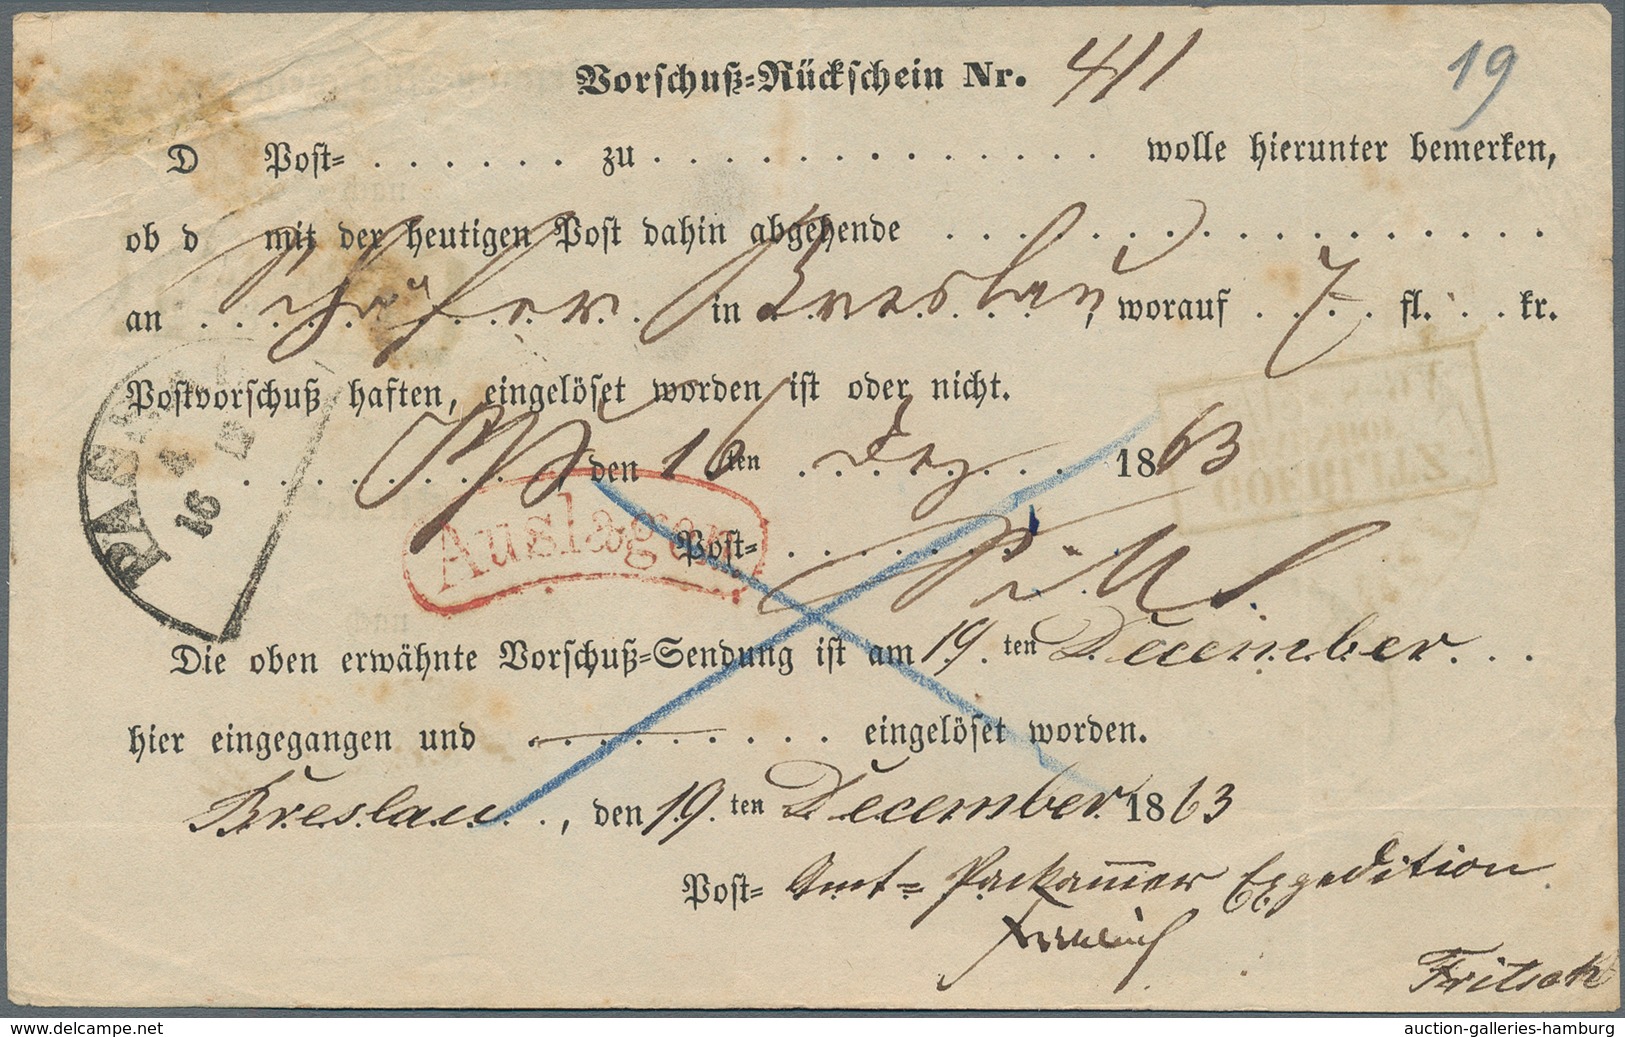 Vorschuß-Rückschein Nr. 411 19
D Post- . . . . . . zu . . . . . . . . . . . . . wolle hierunter bemerken,
ob d mit der heutigen Post dahin abgehende . . . . . . . . . . . . . . . . .
an Schäfer in Breslau, worauf 7 fl. . . kr.
Postvorschuß haften, eingelöset worden ist oder nicht.
den 16ten Dez. 1863
PASSAU
16 12
Auslagen
Post-
Die oben erwähnte Vorschuß-Sendung ist am 19.ten December. . .
hier eingegangen und . . . . . . . . . eingelöset worden.
Breslau . . , den 19.ten December 1863
Post- Amt- Packamer Expedition
Fritsch
www.delcampe.net auction-galleries-hamburg